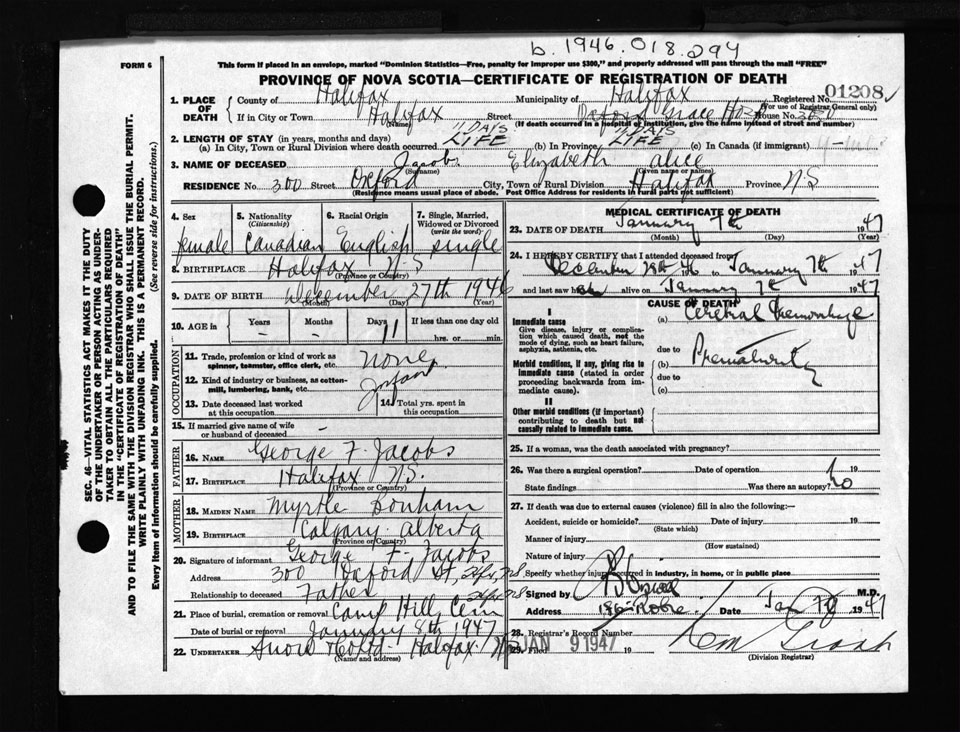 b. 1946.018.294
FORM 6
This form if placed in an envelope, marked "Dominion Statistics—Free, penalty for improper use $300," and properly addressed will pass through the mail "FREE"
PROVINCE OF NOVA SCOTIA—CERTIFICATE OF REGISTRATION OF DEATH
1. PLACE OF DEATH
County of Halifax Municipality of Halifax Registered No. 01208
(For use of Registrar General only)
If in City or Town Halifax Street Grace House No.
(Name) (If death occurred in a hospital or institution, give the name instead of street and number)
2. LENGTH OF STAY (in years, months and days)
(a) In City, Town or Rural Division where death occurred 11 DAYS LIFE (b) In Province 11 DAYS LIFE (c) In Canada (if immigrant)
3. NAME OF DECEASED Jacobs Elizabeth Alice
(Surname) (Given name or names)
RESIDENCE No. 300 Street Oxford City, Town or Rural Division Halifax Province N.S
(Residence means usual place of abode. Post Office Address for residents in rural parts not sufficient)
4. Sex female
5. Nationality (Citizenship) Canadian
6. Racial Origin English
7. Single, Married, Widowed or Divorced (write the word) single
8. BIRTHPLACE Halifax N.S
(Province or Country)
9. DATE OF BIRTH December 27th 1946
(Month) (Day) (Year)
10. AGE in Years - Months - Days 11 If less than one day old
hrs. or min.
OCCUPATION
11. Trade, profession or kind of work as spinner, teamster, office clerk, etc. none
12. Kind of industry or business, as cotton-mill, lumbering, bank, etc. Infant
13. Date deceased last worked at this occupation
14. Total yrs. spent in this occupation
15. If married give name of wife or husband of deceased -
FATHER
16. NAME George F. Jacobs
17. BIRTHPLACE Halifax N.S.
(Province or Country)
MOTHER
18. MAIDEN NAME Myrtle Bonham
19. BIRTHPLACE Calgary Alberta
(Province or Country)
20. Signature of informant George F. Jacobs
Address 300 Oxford St, Hfx, NS
Relationship to deceased Father
21. Place of burial, cremation or removal Camp Hill Cem Hfx NS
Date of burial or removal January 8th 1947
22. UNDERTAKER Snow & Co Ltd Halifax NS
(Name and address)
MEDICAL CERTIFICATE OF DEATH
23. DATE OF DEATH January 7th 1947
(Month) (Day) (Year)
24. I HEREBY CERTIFY that I attended deceased from
December 28th 46 to January 7th 1947
and last saw her alive on January 7th 1947
CAUSE OF DEATH
I
Immediate cause
Give disease, injury or complication which caused death, not the mode of dying, such as heart failure, asphyxia, asthenia, etc.
(a) Cerebral Hemorrhage
due to
Morbid conditions, if any, giving rise to immediate cause (stated in order proceeding backwards from immediate cause).
(b) Prematurity
due to
(c)
II
Other morbid conditions (if important) contributing to death but not causally related to immediate cause.
25. If a woman, was the death associated with pregnancy?
26. Was there a surgical operation? Date of operation
State findings Was there an autopsy? No
27. If death was due to external causes (violence) fill in also the following:—
Accident, suicide or homicide? Date of injury 19
(State which)
Manner of injury
(How sustained)
Nature of injury
Specify whether injury occurred in industry, in home, or in public place
Signed by M.D.
Address Robie Date Jan 1947
28. Registrar's Record Number
29. Filed JAN 9 1947 19
(Division Registrar)
SEC. 46—VITAL STATISTICS ACT MAKES IT THE DUTY
OF THE UNDERTAKER OR PERSON ACTING AS UNDER-
TAKER TO OBTAIN ALL THE PARTICULARS REQUIRED
IN THE "CERTIFICATE OF REGISTRATION OF DEATH"
AND TO FILE THE SAME WITH THE DIVISION REGISTRAR WHO SHALL ISSUE THE BURIAL PERMIT.
WRITE PLAINLY WITH UNFADING INK. THIS IS A PERMANENT RECORD.
Every item of information should be carefully supplied. (See reverse side for instructions.)